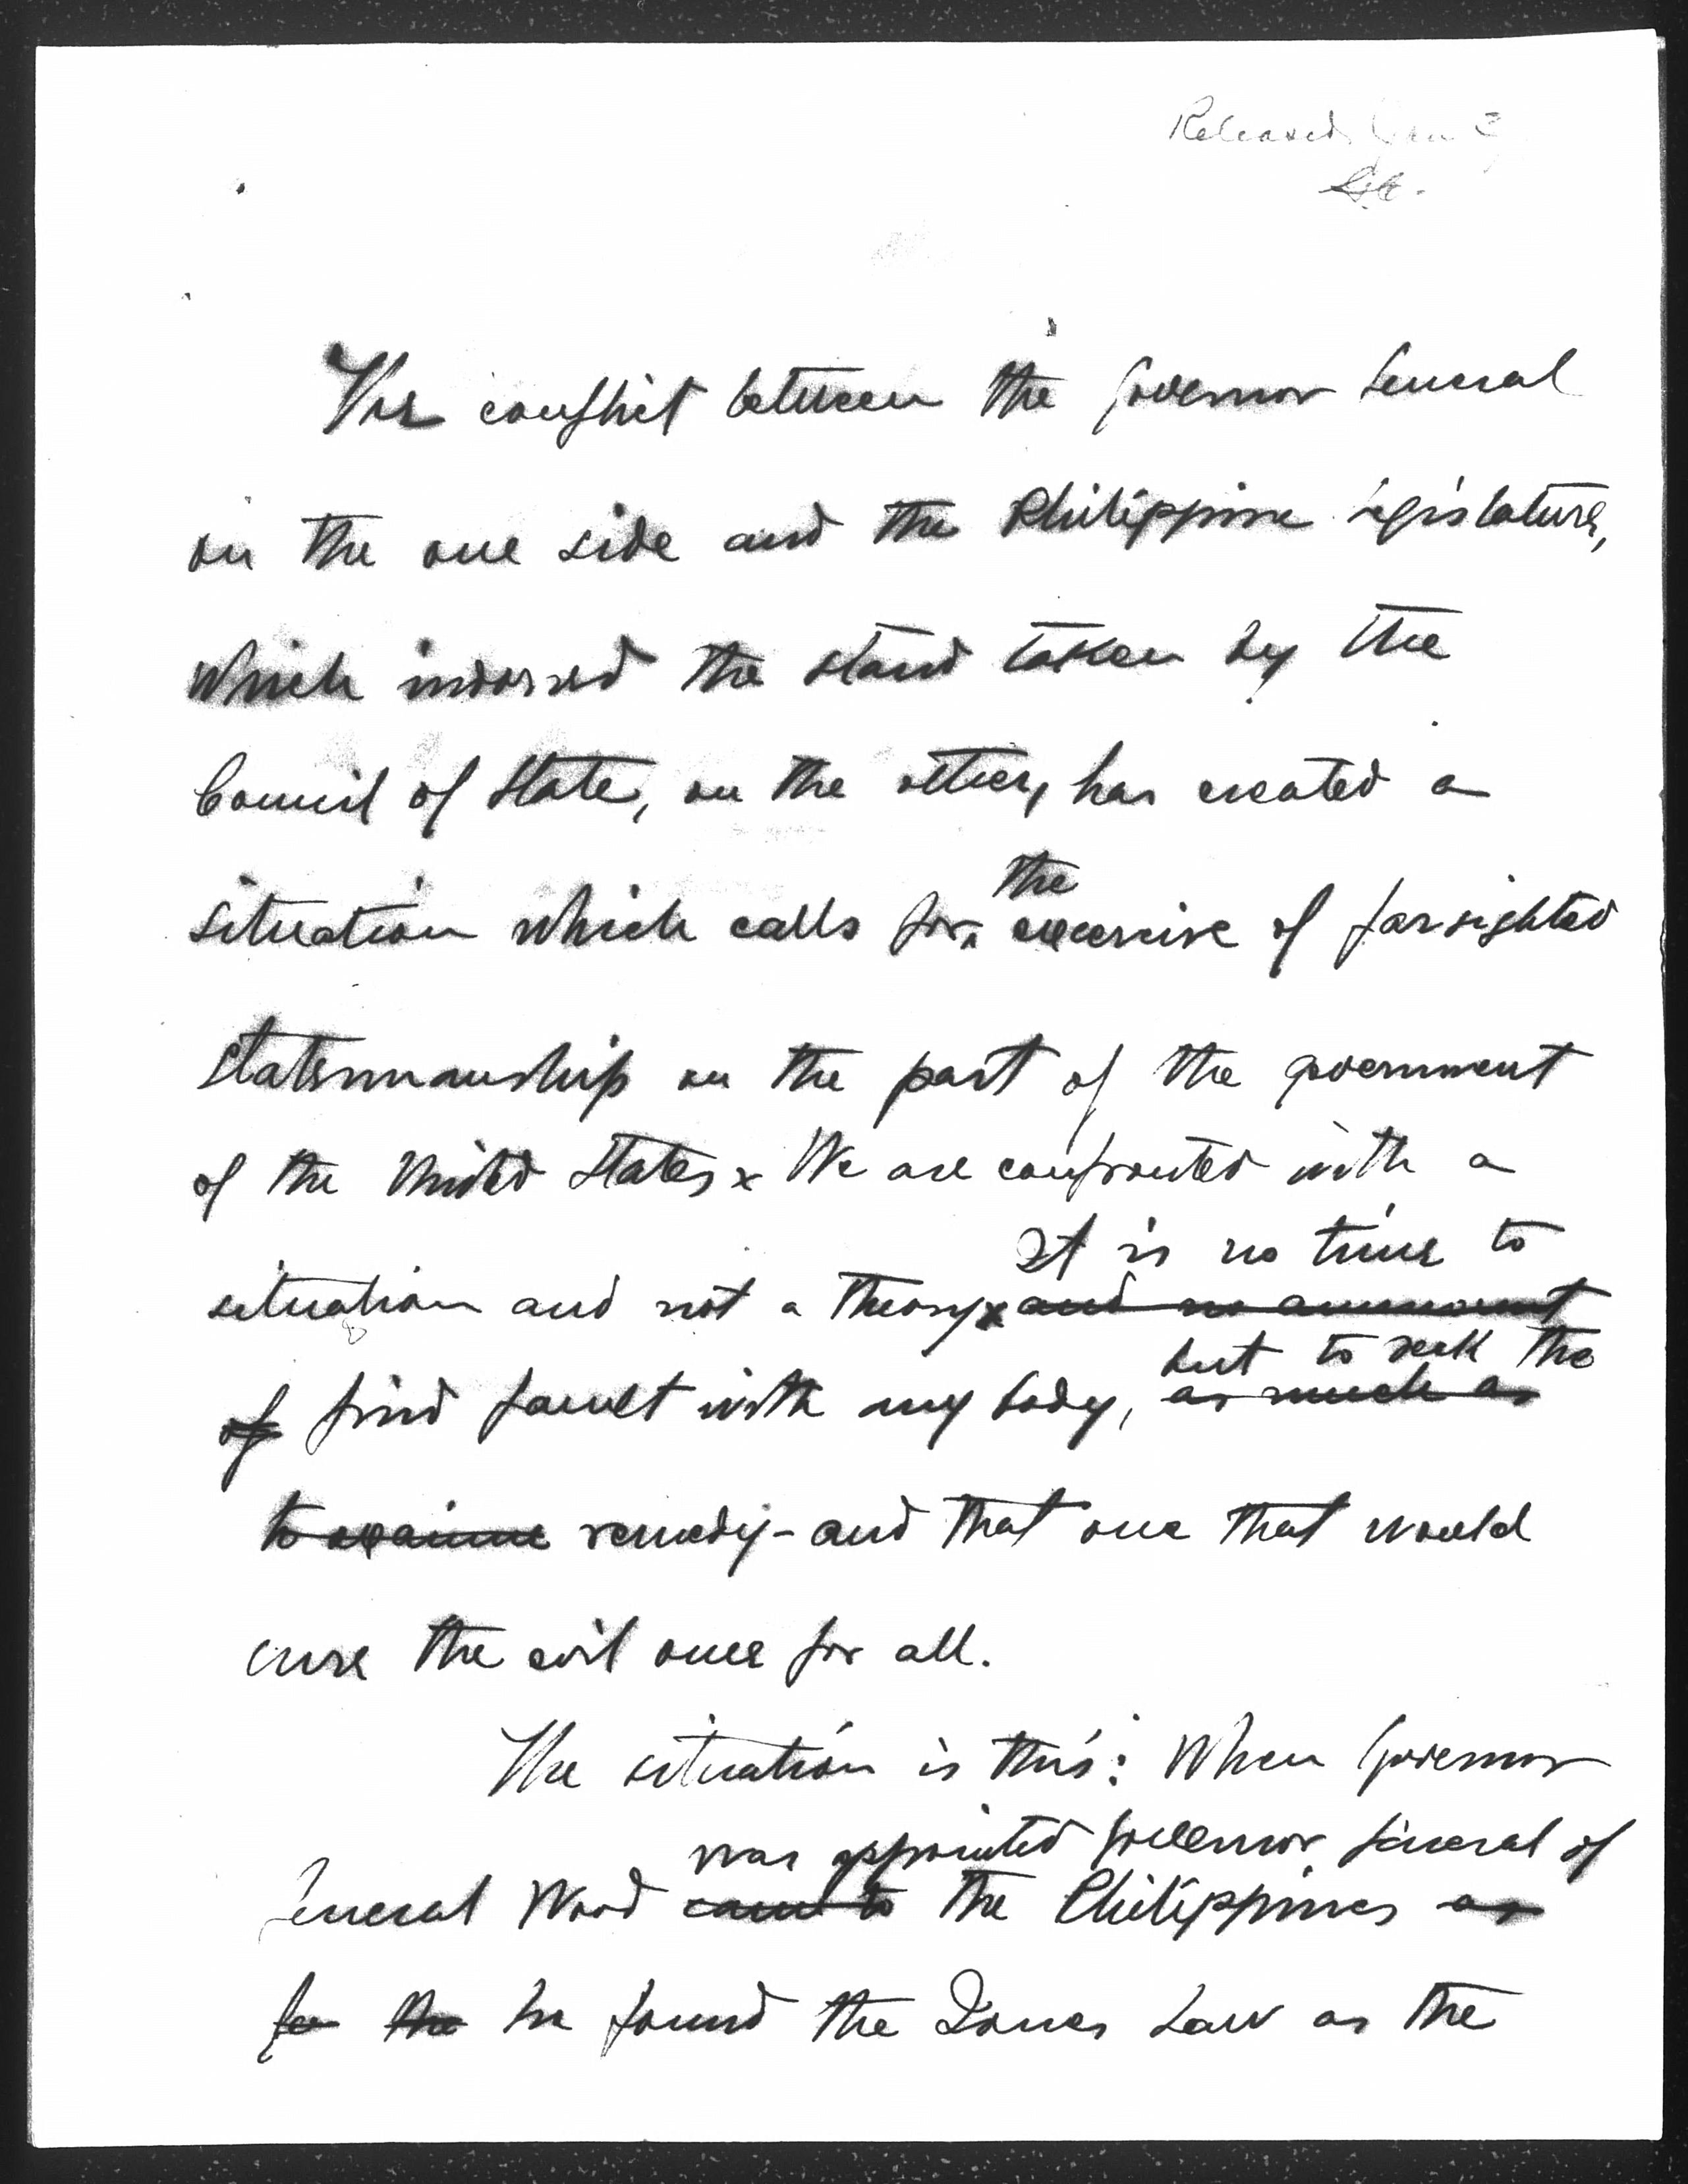 Released
The conflict between the Governor General
on the one side and the Philippine legislature,
which indorsed the stand taken by the
Council of State, on the other, has created a
the
situation which calls for exercise of farsighted
statesmanship on the part of the government
of the United States x We are confronted with a
It is no time to
situation and not a theory x and no ammount
but to seek the
of find fault with any body, as much as
to remedy - and that one that would
cure the evil once for all.
The situation is this: When Governor
was appointed Governor General of
General Wood came to the Philippines as
the he found the Jones Law as the